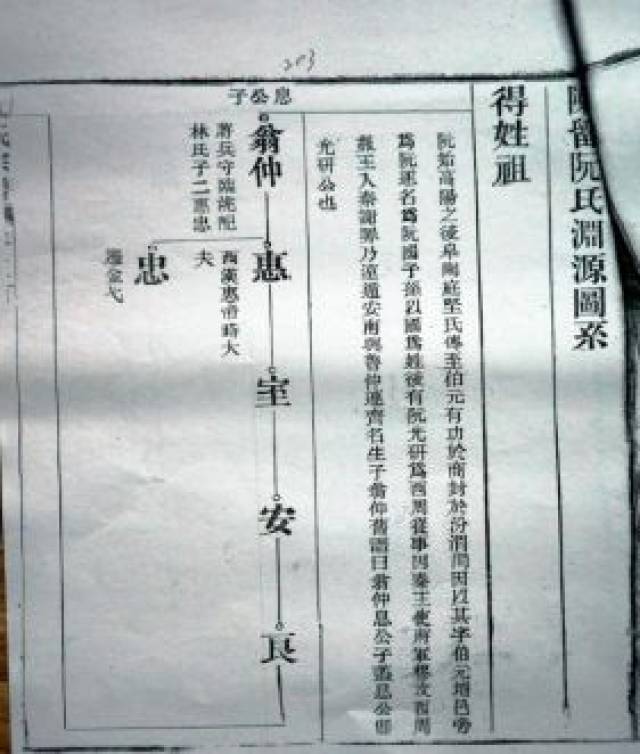 203
陳留阮氏淵源圖系
得姓祖
阮始高陽之後皐陶庭堅氏傳至伯元有功於商封於汾渭間因以其字伯元增邑旁
爲阮遂名爲阮國子孫以國爲姓後有阮光研爲西周從事因秦王使將軍摎攻西周
赧王入秦謝罪乃遠適安南與魯仲連齊名生子翁仲舊譜曰翁仲息公子
光研公也
息公子
翁仲
署兵守臨洮配
林氏子二惠忠
惠
西漢惠帝時大
夫
忠
遷金弋
室
安
良